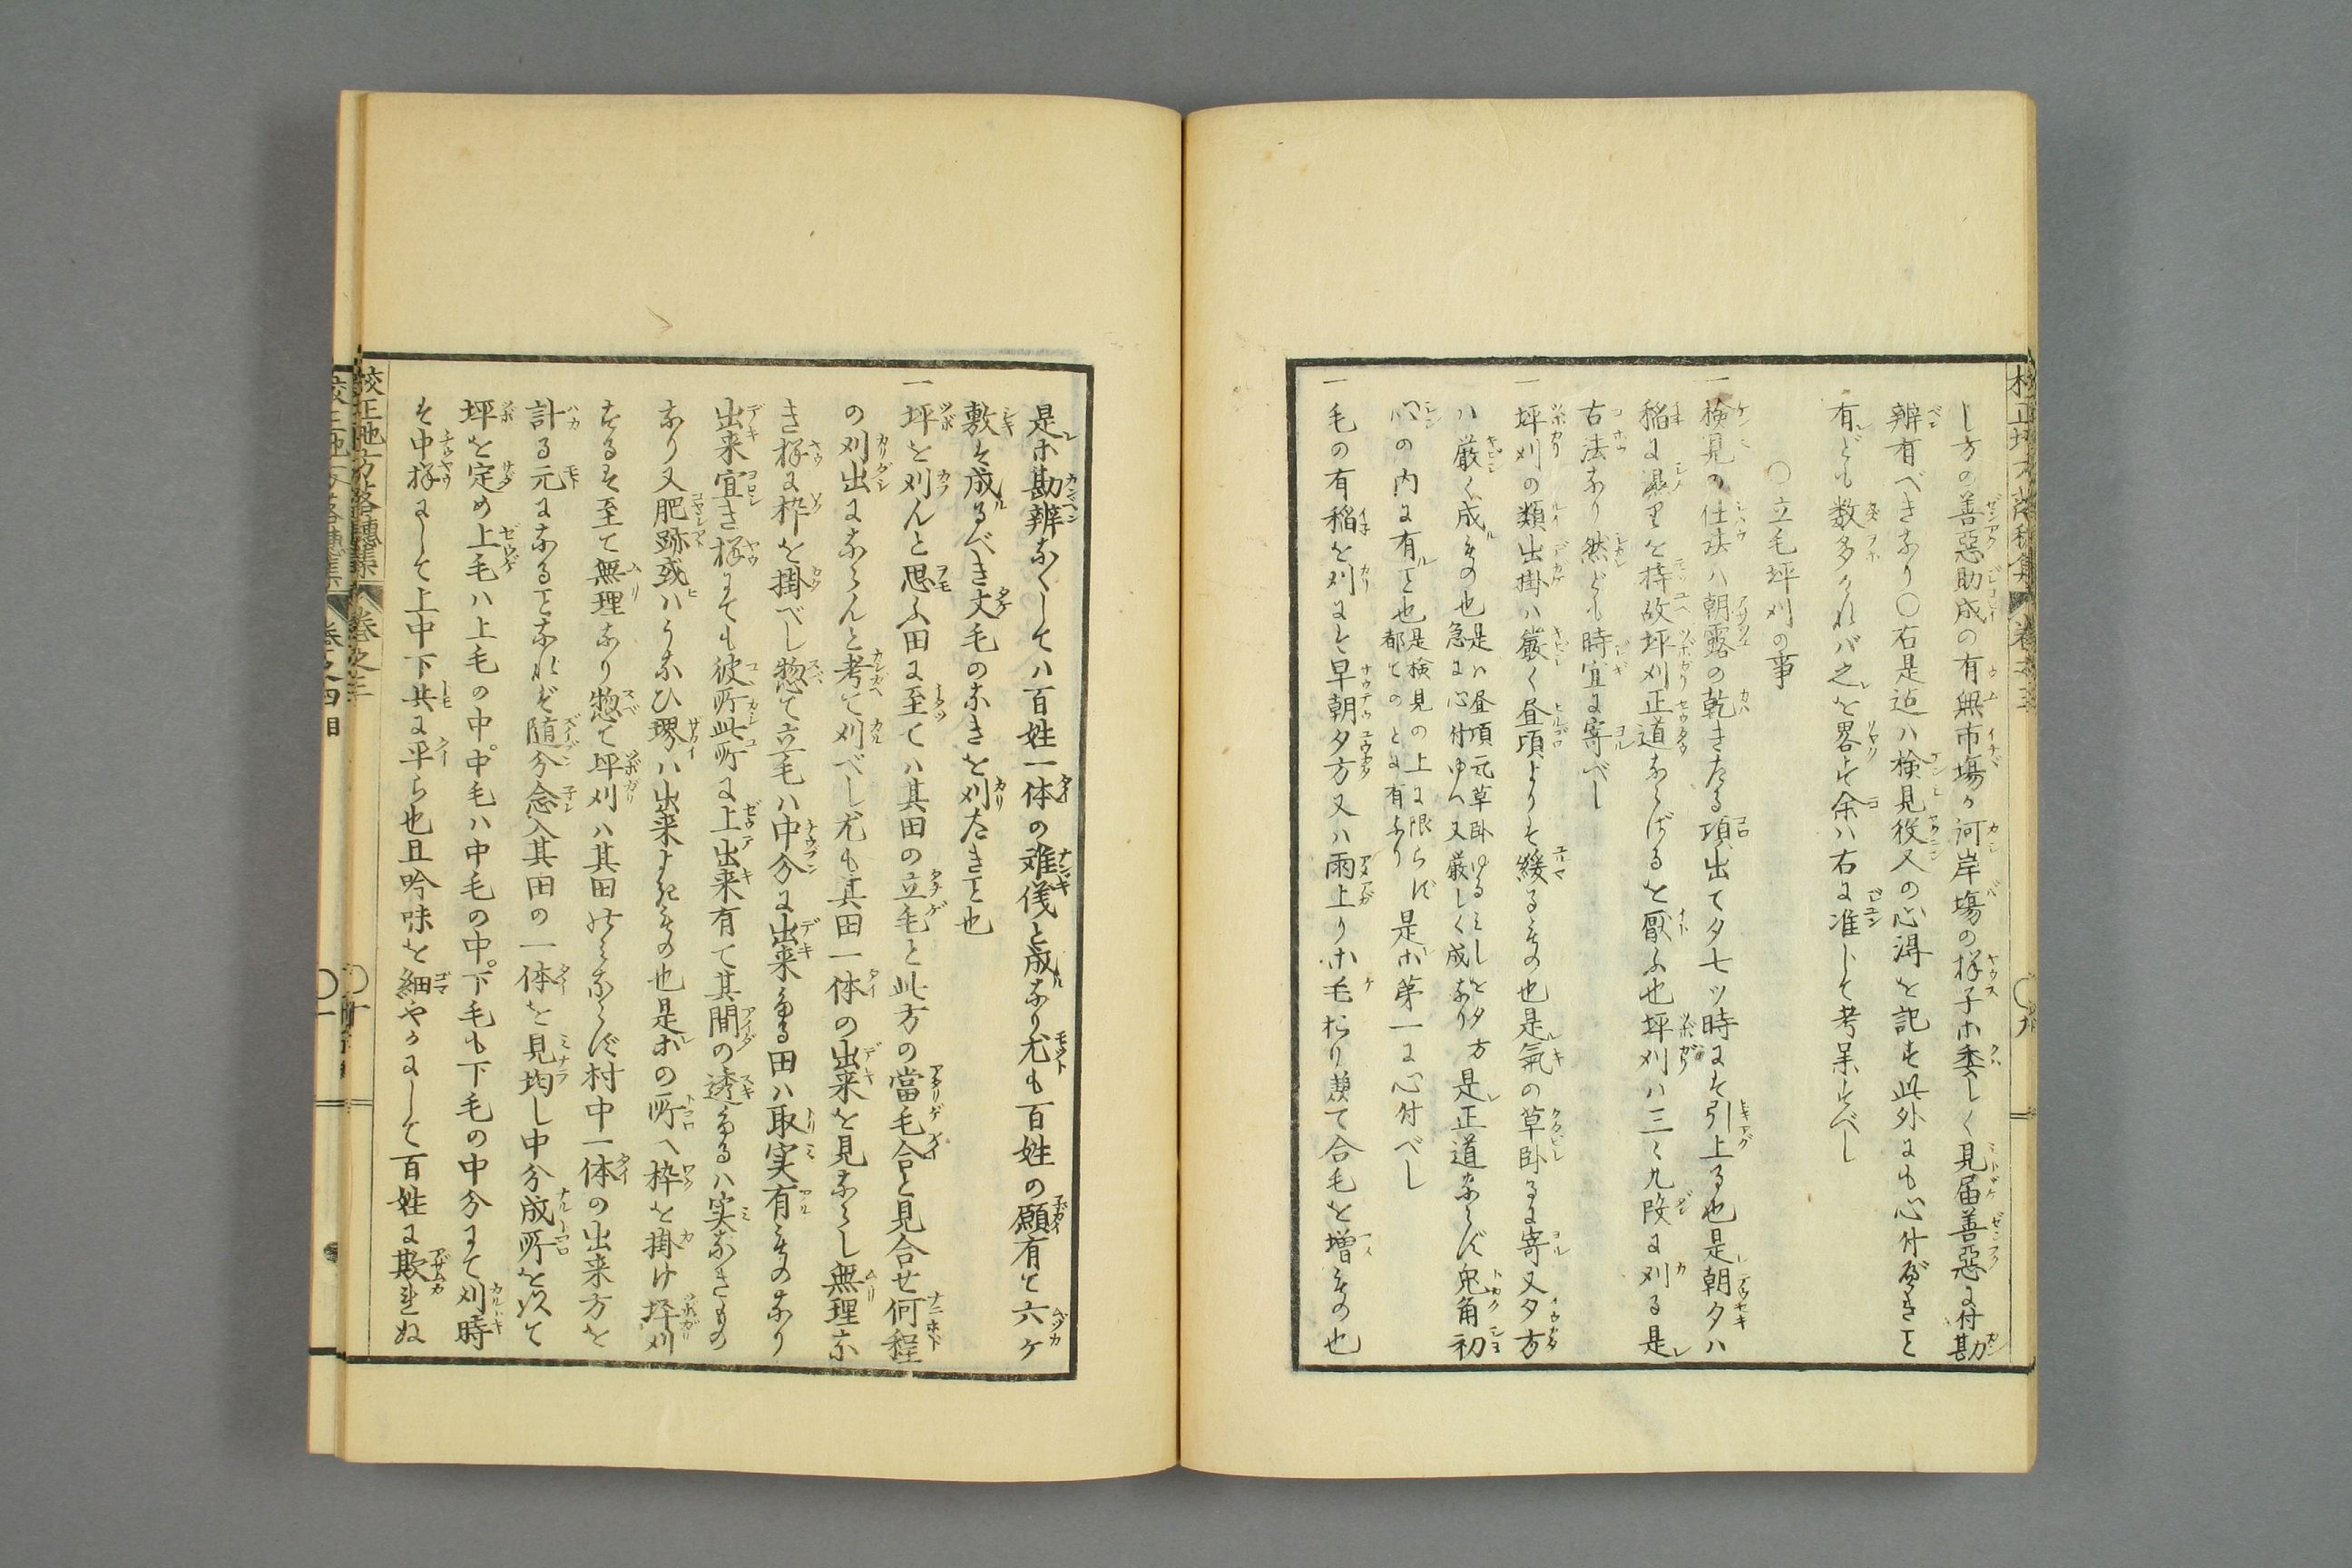 し方の善惡助成の有無市塲か河岸塲の様子ホ委しく見届善惡に付勘
辨有べきなり〇右是迠ハ検見役人の心得を記す此外にも心付べきこと
有ども数多なれバ之を畧す余ハ右に准じて考呆すべし
〇立毛坪刈の事
一検見の仕法ハ朝露の乾きたる頃出て夕七ツ時にて引上る也是朝夕ハ
稲に濕りを持故坪刈正道ならざるを厭ふ也坪刈ハ三々九段に刈る是
古法なり然ども時宜に寄べし
一坪刈の類出掛ハ嚴く昼頃よりそ緩るもの也是氣の草卧るに寄又夕方
ハ厳く成もの也是ハ昼頃元草卧ゆるみしを夕方
急に心付ゆへ又厳しく成なり是正道ならず兎角初
心の内に有こと也是検見の上に限らず
都てのとに有なり是ホ第一に心付べし
一毛の有稲を刈にそ早朝夕方又ハ雨上りホ毛
て合毛を増もの也
是ホ勘辨なくしてハ百姓一体の難儀と成なり尤も百姓の願有て六ケ
敷そ成るべき丈毛のなきを刈たきこと也
一坪を刈んと思ふ田に至てハ其田の立毛と此方の當毛合と見合せ何程
の刈出にならんと考て刈べし尤も其田一体の出来を見ならし無理な
き様に枠を掛べし惣て立毛ハ中分に出来ある田ハ取実有ものなり
出来宜き様にても彼所此所に上出来有て其間の透あるハ実なきもの
なり又肥跡或ハうなひ堺ハ出来よきもの也是ホの所へ枠を掛け坪刈
するそ至て無理なり惣て坪刈ハ其田のミならず村中一体の出来方を
計る元になることなれバ随分念入其田の一体を見均し中分成所を以て
坪を定め上毛ハ上毛の中。中毛ハ中毛の中。下毛も下毛の中分にて刈時
そ中様にして上中下共に平ら也且吟味を細やかにして百姓に欺れぬ
校正地方落穗集 巻之三 〇十
巻之四 目 〇一